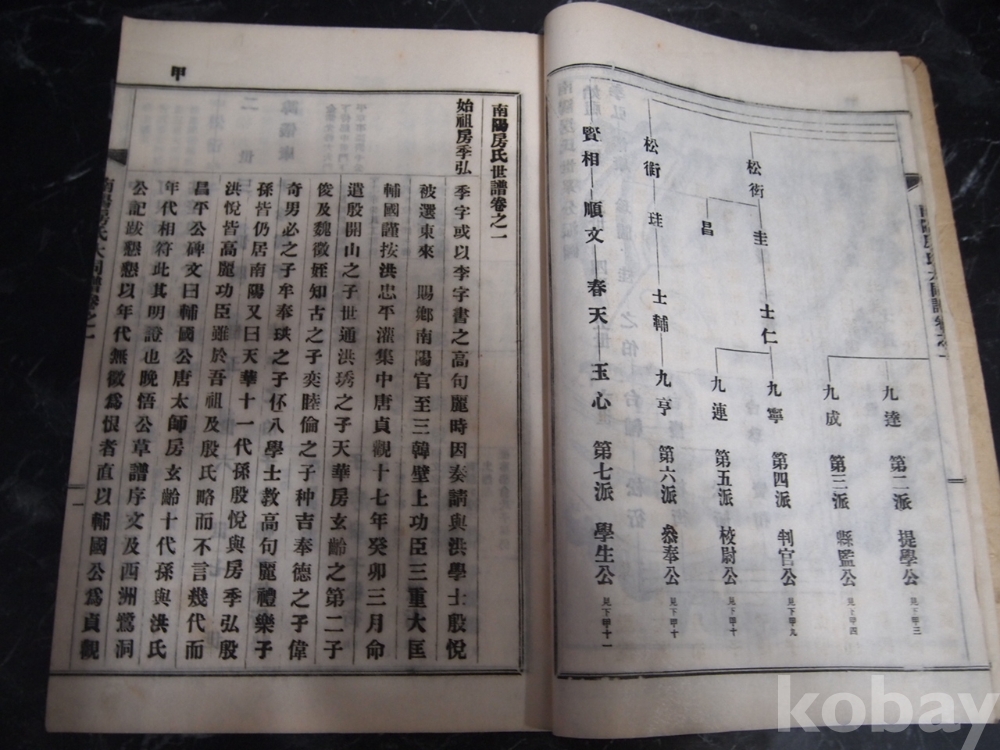 松衛
圭
士仁
九達
第二派
提學公
見下甲三
九成
第三派
縣監公
九寧
第四派
判官公
見下甲九
九連
第五派
校尉公
見下甲十
松衛
珪
昌
士輔
九亨
第六派
叅奉公
見下甲十
賢相
順文
春天
玉心
第七派
學生公
見下甲十一
南陽房氏世譜卷之一
始祖房季弘
季字或以李字書之高句麗時因奏請與洪學士殷悅
被選東來 賜鄉南陽官至三韓壁上功臣三重大匡
輔國謹按洪忠平灌集中唐貞觀十七年癸卯三月命
遣殷開山之子世通洪琇之子天華房玄齡之第二子
俊及魏徵姪知古之子奕睦倫之子种吉奉德之子偉
奇男必之子牟奉珙之子伾八學士教高句麗禮樂子
孫皆仍居南陽又曰天華十一代孫殷悅與房季弘殷
洪悅皆高麗功臣雖於吾祖及殷氏略而不言幾代而
昌平公碑文曰輔國公唐太師房玄齡十代孫與洪氏
年代相符此其明證也晚悟公草譜序文及西洲鷺洞
公記跋懇懇以年代無徵爲恨者直以輔國公爲貞觀
甲
kobay